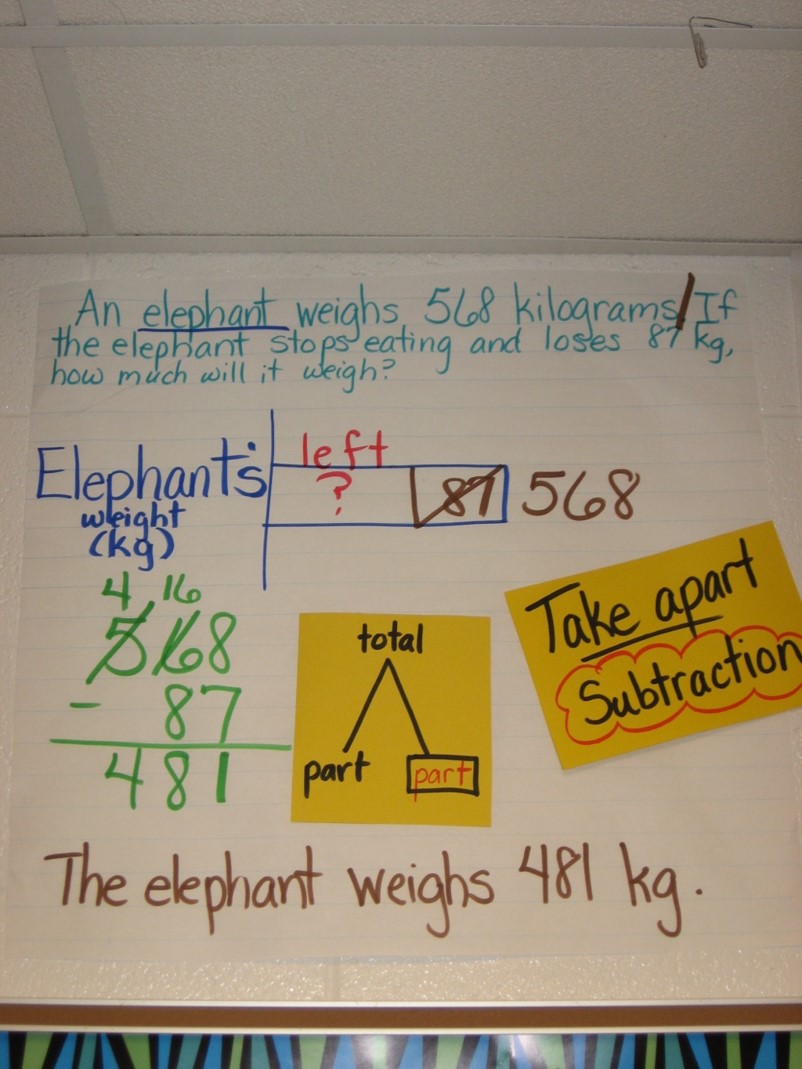 An elephant weighs 568 kilograms/If
the elephant stops eating and loses 87 kg,
how much will it weigh?
left
Elephant's ? 87 568
weight
(kg)
4 16
568
- 87
481
total
part part
Take apart
Subtraction
The elephant weighs 481 kg.